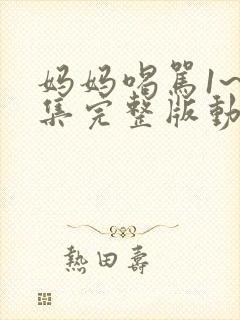 妈妈喝骂1~
集完整版動
熱田壽